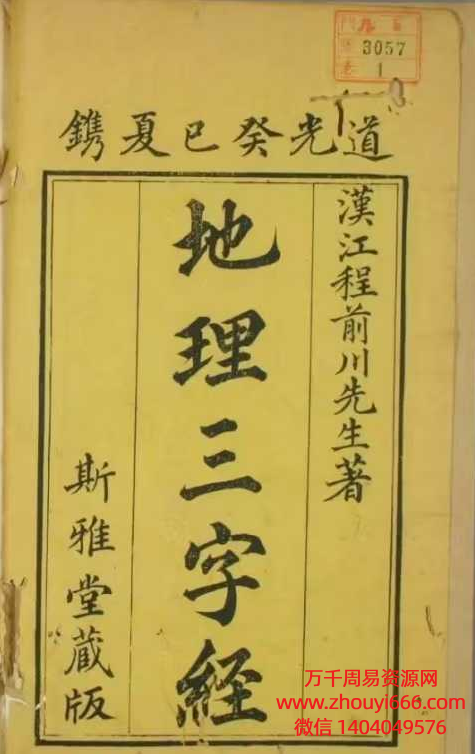 3057
1
道光癸巳夏鐫
漢江程前川先生著
地理三字經
斯雅堂蔵版
万千周易资源网
www.zhouyi666.com
微信 1404049576